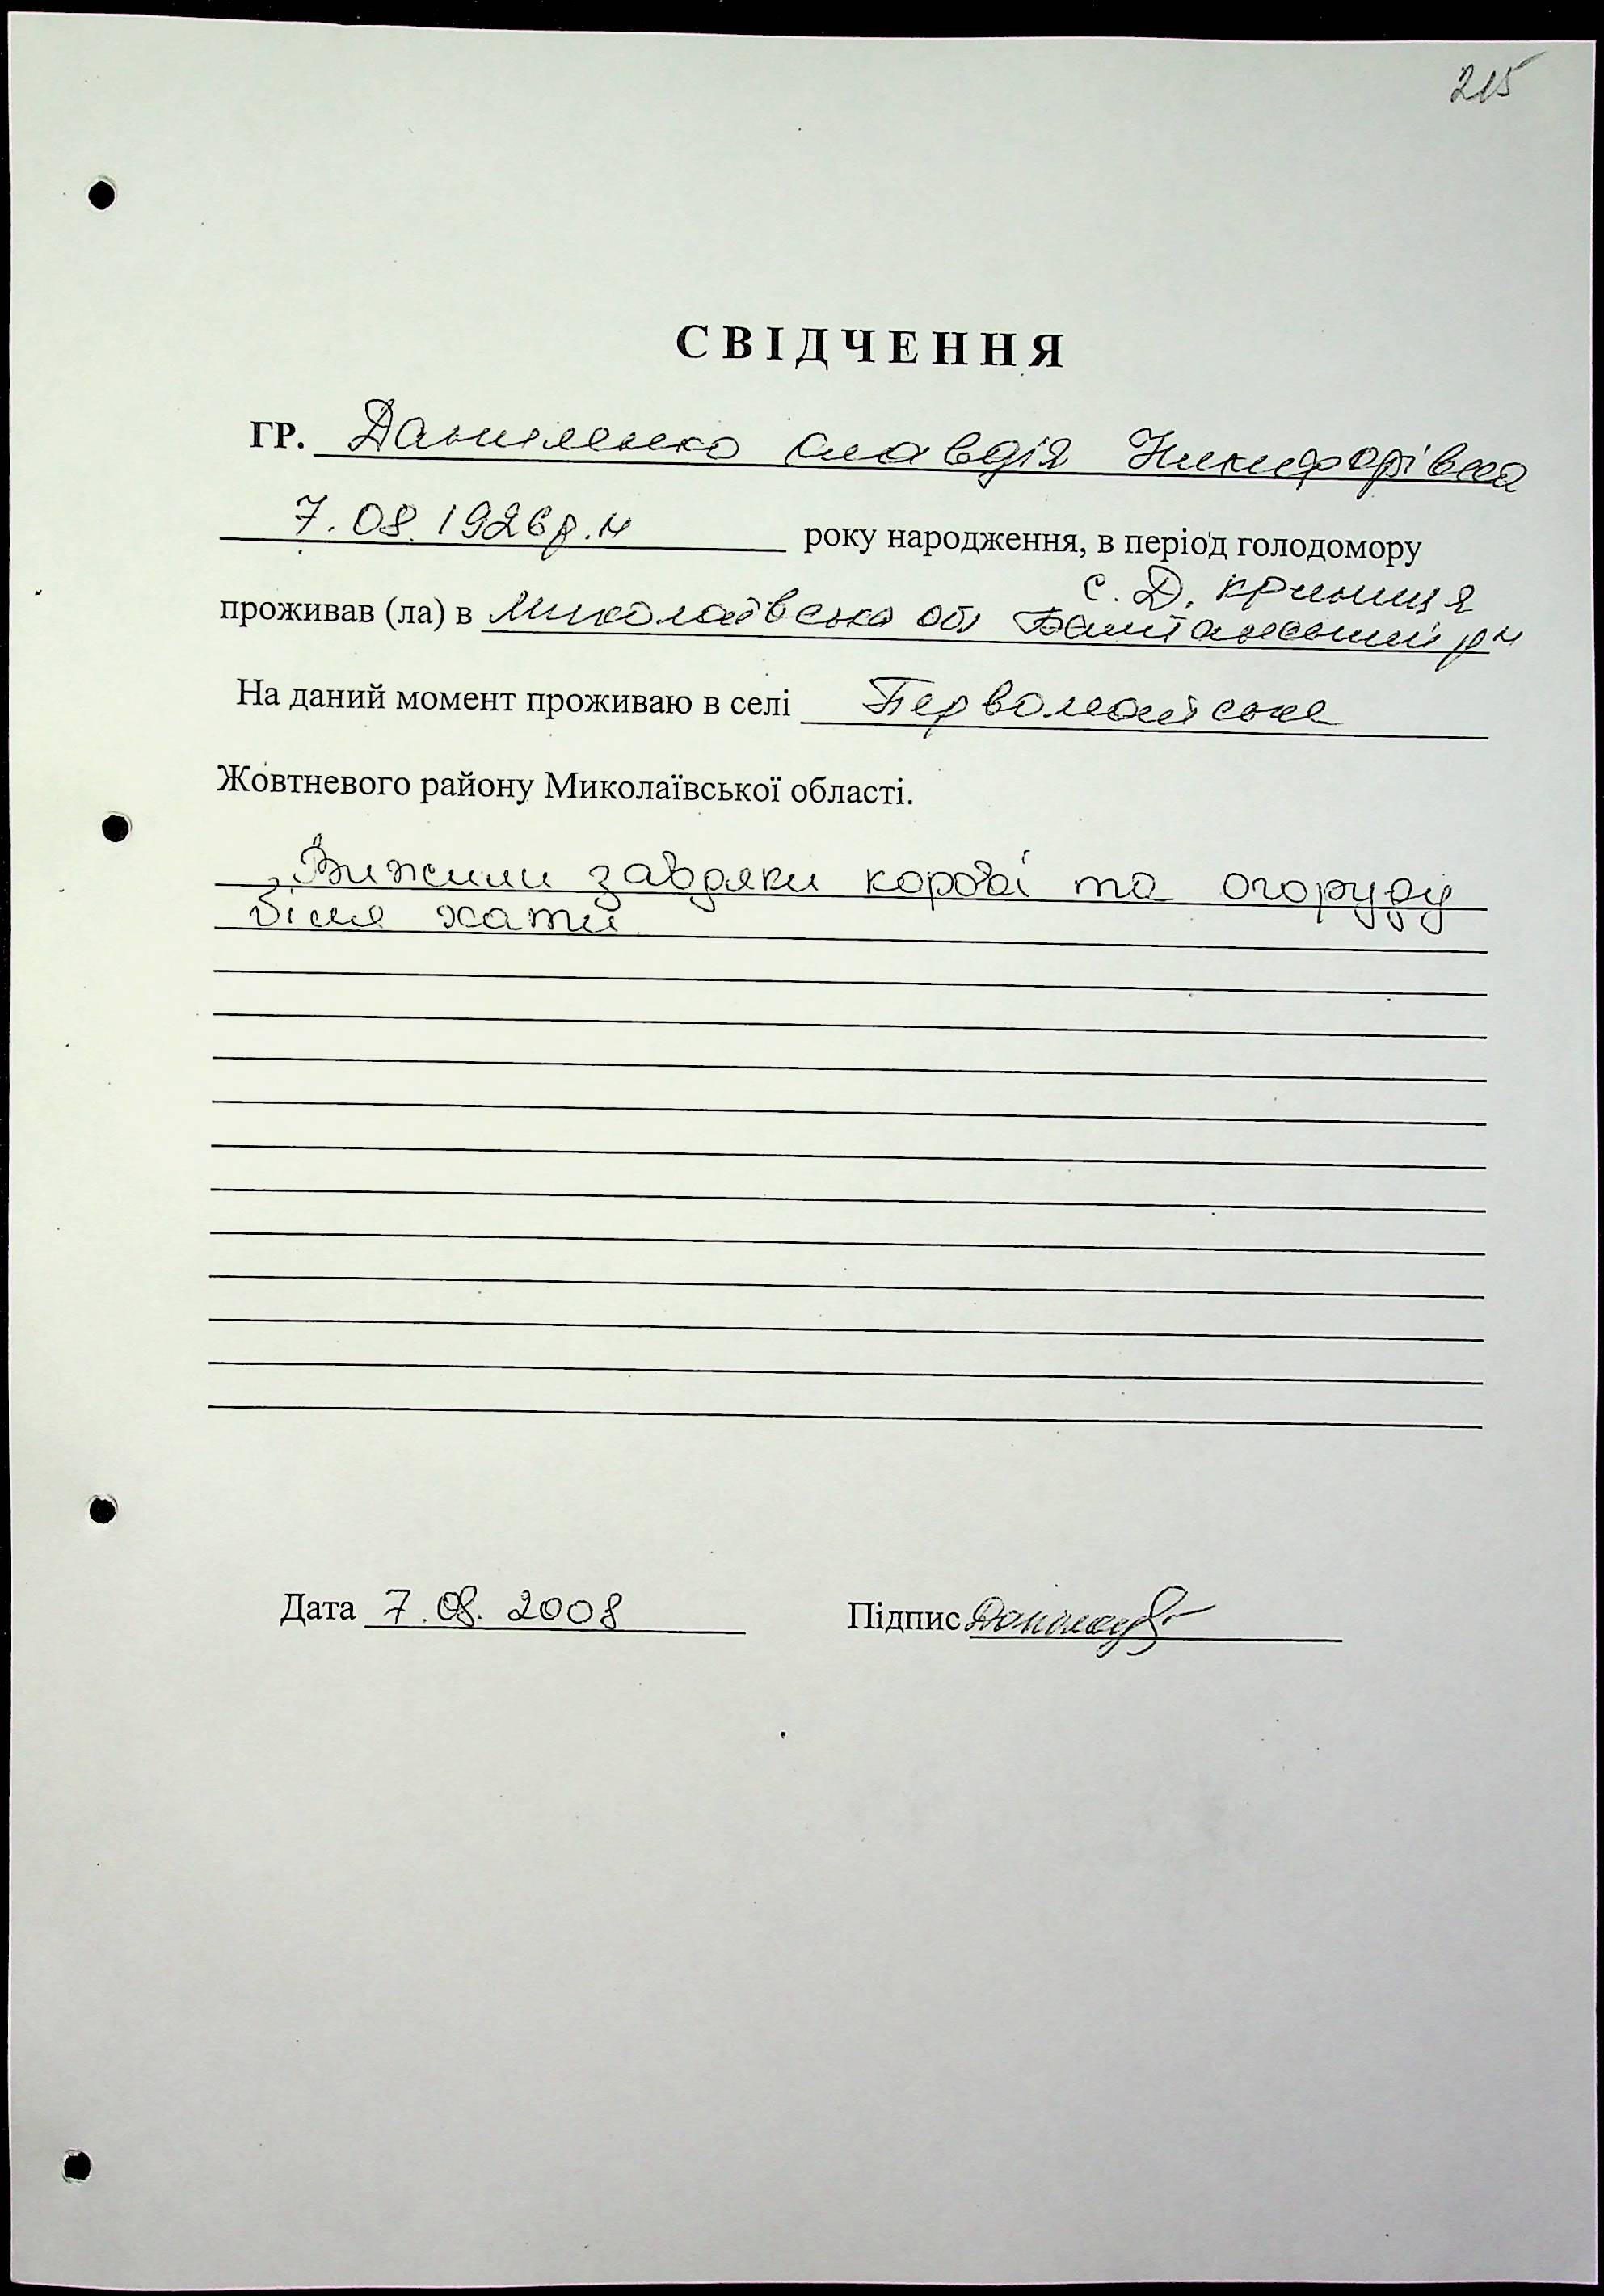 215
СВІДЧЕННЯ
ГР. Даниленко Клавдія Никифорівна
7.08.1926р.н року народження, в період голодомору
с. Д. криниця
проживав (ла) в Миколаївська обл Баштанський рн
На даний момент проживаю в селі Первомайське
Жовтневого району Миколаївської області.
Вижили завдяки корові та огороду
біля хати.
Дата 7.08.2008 Підпис